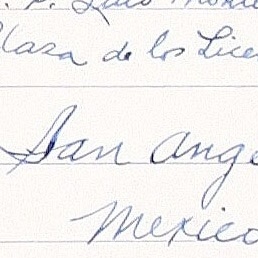 Plaza de los Lice
San Ange
Mexico